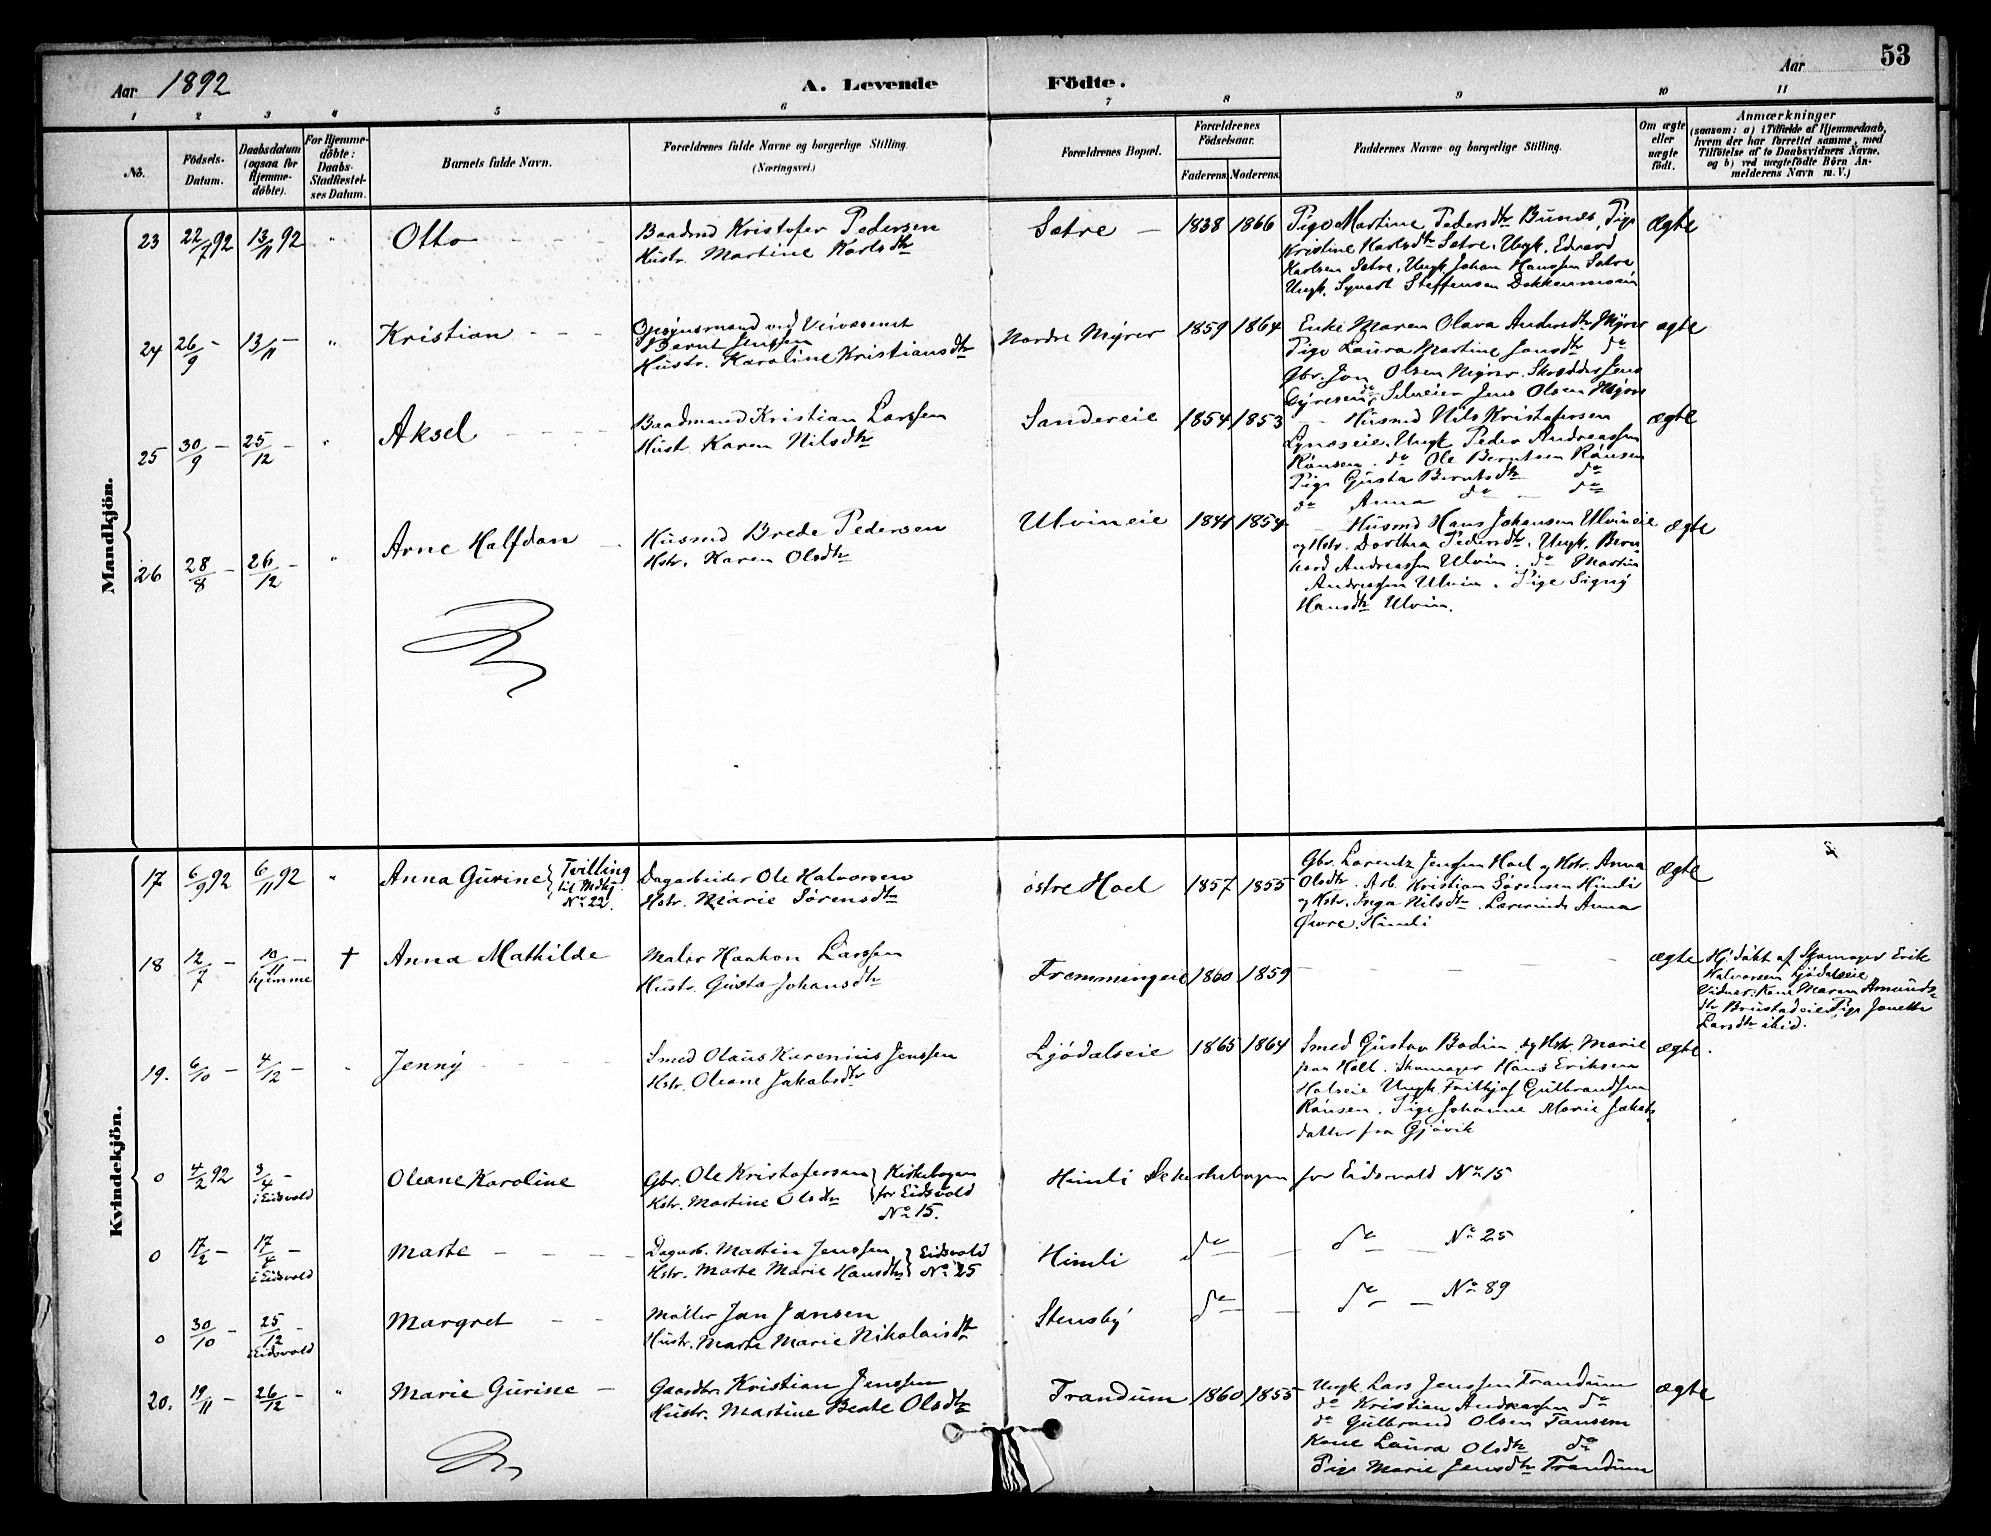 53
Aar 1892
A. Levende Födte.
Aar
1 2 3 4 5 6 7 8 9 10 11
No.
Födsels-Datum.
Daabsdatum (ogsaa for Hjemme-döbte).
For Hjemme-döbte: Daabs-Stadfæstel-ses Datum.
Barnets fulde Navn.
Forældrenes fulde Navne og borgerlige Stilling.
(Næringsvei.)
Forældrenes Bopæl.
Forældrenes Födselsaar.
Faderens. Moderens.
Faddernes Navne og borgerlige Stilling.
Om ægte eller uægte födt.
Anmærkninger
(saasom: a) i Tilfælde af Hjemmedaab,
hvem der har forrettet samme, med
Tilföielse af to Daabsvidners Navne,
og b) ved uægtefödte Börn An-
melderens Navn m. V.)
Mandkjön.
23 22/7 92 13/11 92 " Otto - - -
Baadmd Kristofer Pedersen
Hustr. Martine Karlsdtr
Sætre - 1838 1866
Pige Martine Pedersdtr Bunæs, Pige
Kristine Karlsdtr Sætre, Ungk. Edvard
Karlsen Sætre, Ungk. Johan Hanssen Sætre
Ungk. Syvert Steffensen Dokkenmoen
Ægte
24 26/9 - 13/11 - " Kristian - - -
Opsynsmand ved Veivæsenet
Bernt Jenssen
Hustr. Karoline Kristiansdtr
Nordre Myrer 1859 1864
Enke Maren Olava Andersdtr Myrer
Pige Laura Martine Jonsdtr do
Gbr. Jon Olsen Myrer. Skrædder Jens
Syversen do, Selveier Jens Olsen Myrer
ægte
25 30/9 - 25/12 - " Aksel - - - -
Baadmand Kristian Larssen
Hust. Karen Nilsdtr
Sandereie 1854 1853
Husmd Nils Kristofersen
Lynæseie, Ungk. Peder Andreassen
Rønsen. do Ole Berntsen Rønsen
Pige Gusta Berntsdtr do
do Anna do - do
ægte
26 28/8 - 26/12 - " Arne Halfdan -
Husmd Brede Pedersen
Hstr. Karen Olsdtr
Ulvineie 1841 1854
Husmd Hans Johansen Ulvineie
og Hstr. Dorthea Pedersdtr, Ungk. Bern-
hard Andreassen Ulvin. do Martin
Andreassen Ulvin. Pige Signy
Hansdtr Ulvin.
ægte
Kvindekjön.
17 6/9 92 6/11 92 " Anna Gurine Tvilling til Mdkj. No 22.
Dagarbeider Ole Halvorsen
Hstr. Marie Sørensdtr
østre Hoel 1857 1855
Gbr. Lorentz Jenssen Hoel og Hstr. Anna
Olsdtr. Arb. Kristian Sørensen Himli
og Hstr. Inga Nilsdtr. Lærerinde Anna
Øvre Himli
ægte
18 12/7 - 10/11 - hjemme † Anna Mathilde
Maler Haakon Larssen
Hustr. Gusta Johansdtr
Fremmingeie 1860 1859 - - - - -
ægte
Hj.døbt af Skomager Erik
Halvorsen Ljødalseie
Vidner: Kone Maren Amunds-
dtr Brustadeie, Pige Jonette
Larsdtr ibid.
19. 6/10 - 4/12 - " Jenny - - -
Smed Olaus Karenius Jenssen
Hstr. Oleane Jakobsdtr
Ljødalseie 1865 1864
Smed Gustav Bodin og Hstr. Marie
paa Holt. Skomager Hans Eriksen
Holseie Ungk. Fritkjof Gulbrandsen
Rønsen. Pige Johanne Marie Jakobs
datter fra Gjøvik
ægte.
0 4/2 92 3/4 - i Eidsvold Oleane Karoline
Gbr. Ole Kristofersen
Hstr. Martine Olsdtr
Kirkebogen for Eidsvold No 15.
Himli Se kirkebogen for Eidsvold No 15
0 17/2 - 17/4 - i Eidsvold Marte - - - -
Dagarb. Martin Jenssen
Hstr. Marte Marie Hansdtr
Eidsvold No 25
Himli do - - do - No 25
0 30/10 - 25/12 - i Eidsvold Margret - -
Møller Jan Jansen
Hustr. Marte Marie Nikolaisdtr
Stensby do - - do - No 89
20. 19/11 - 26/12 - " Marie Gurine -
Gaardbr. Kristian Jenssen
Hustr. Martine Beate Olsdtr
Trandum 1860 1855
Ungk. Lars Jenssen Trandum
do Kristian Andreassen do
do Gulbrand Olsen Tansem
Kone Laura Olsdtr do
Pige Marie Jensdtr Trandum
ægte